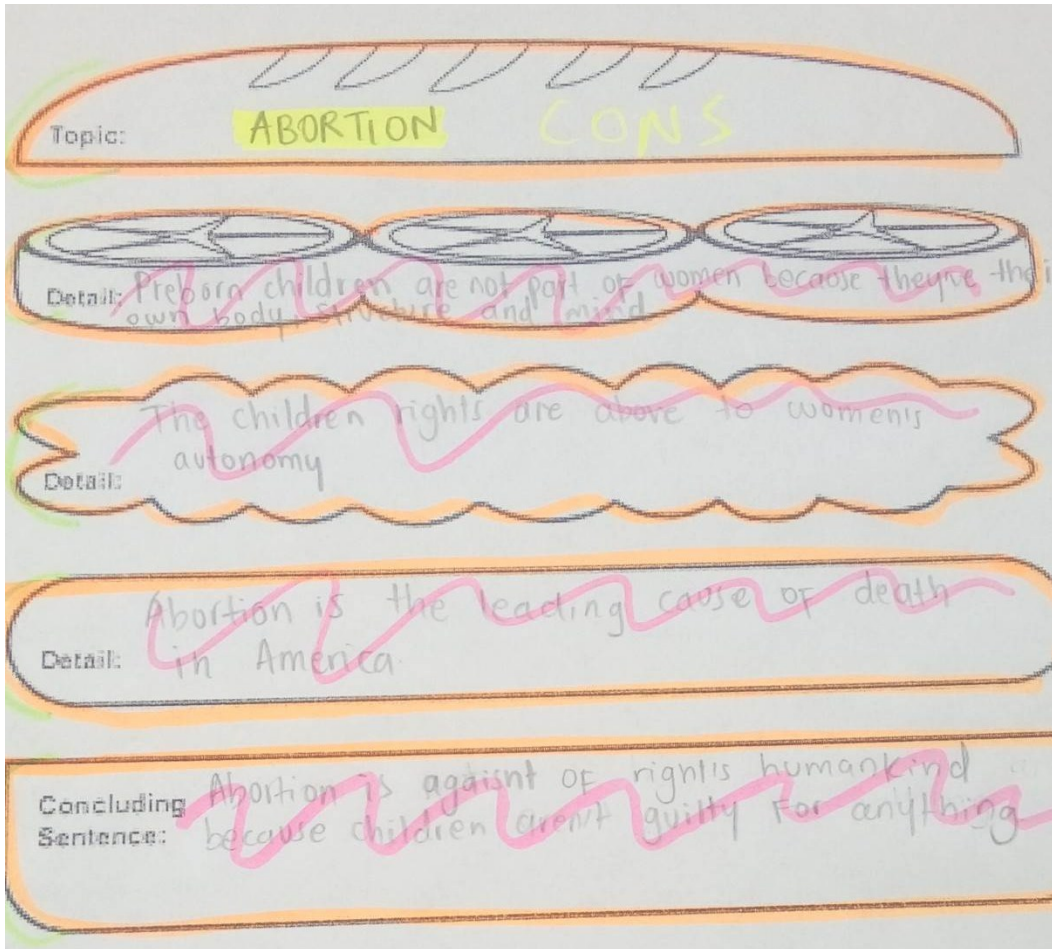 Topic: ABORTION CONS
Detail: Preborn children are not part of women because theyre thei
own body, structure and mind
The children rights are above to women's
autonomy
Detail:
Abortion is the leading cause of death
Detail: in America.
Concluding Abortion is agaisnt of right's humankind
Sentence: because children aren't guilty For anything